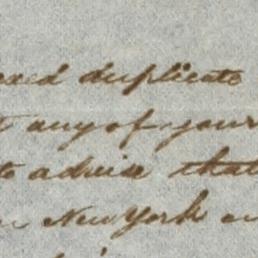 duplicate
any of your
to advise that
New York